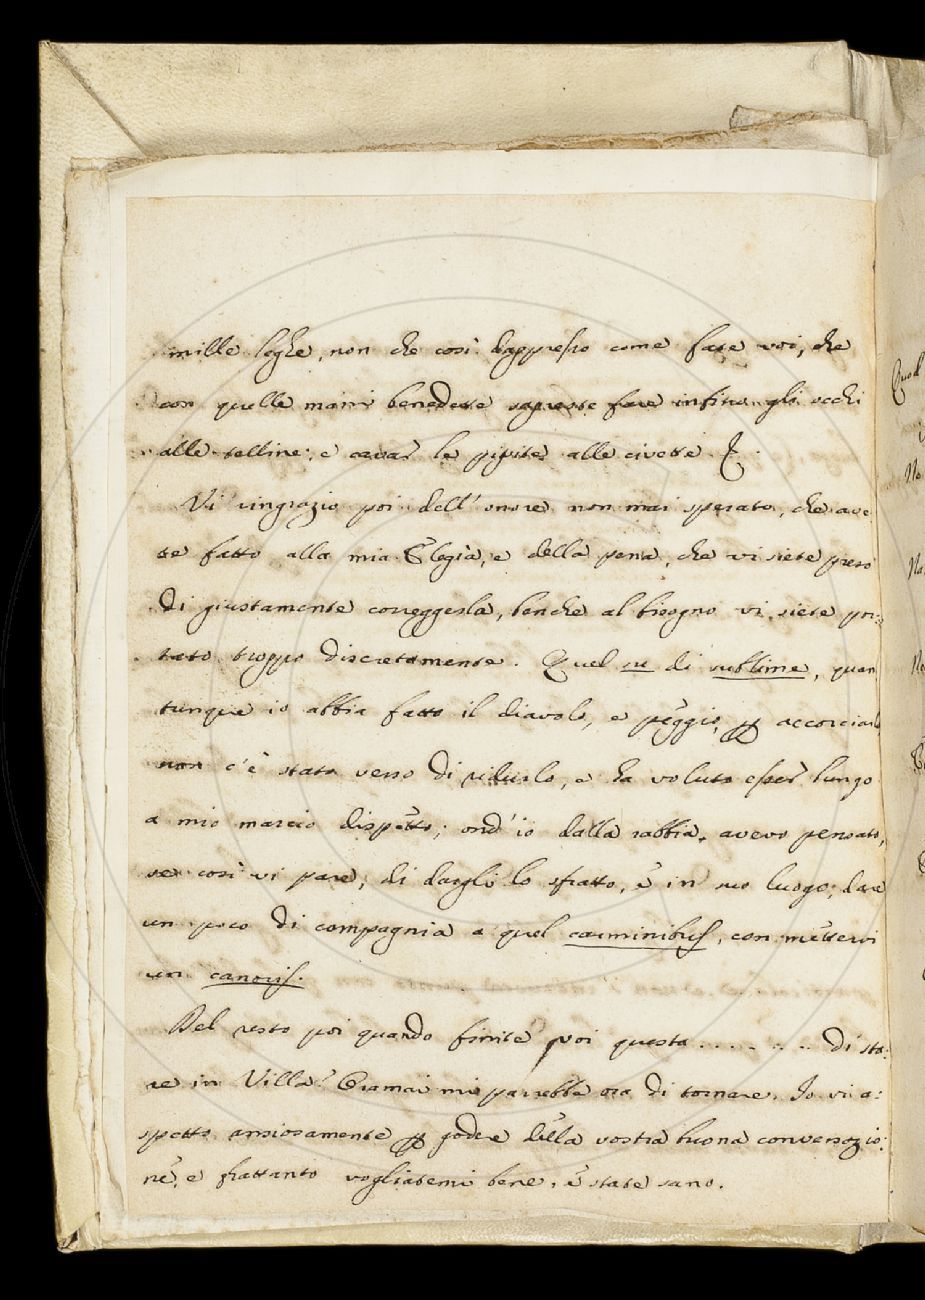 mille leghe, non che così dappresso come fate voi, che
con quelle mani benedette sapreste fare infino gli occhi
alle telline, e cavar le pipite alle civette.
Vi ringrazio poi dell'onore non mai sperato, che ave
te fatto alla mia Elegia, e della pena, che vi siete preso
di giustamente correggerla, benche al bisogno vi siete por:
tato troppo discretamente. Quel su di sublime, quan
tunque io abbia fatto il diavolo, e peggio, p accorciarlo
non c'è stato verso di ridurlo, e ha voluto esser lungo
a mio marcio dispetto; ond'io dalla rabbia, avevo pensato,
se così vi pare, di dargli lo sfratto, è in suo luogo, dare
un poco di compagnia a quel carminibus, con mettervi
un canoris.
Del resto poi quando finite poi questa . . . . . . . di sta:
re in Villa? Oramai mi parrebbe ora di tornare. Io vi a:
spetto ansiosamente p godere della vostra buona conversazio:
ne, e frattanto vogliatemi bene, è state sano.
Quod
No
Na